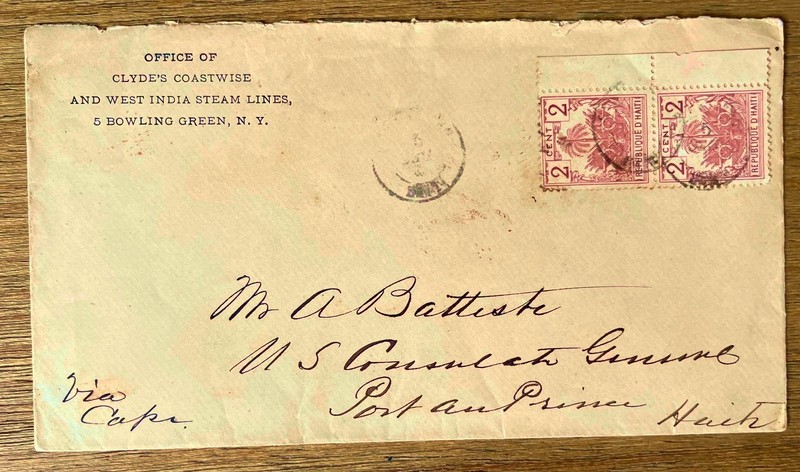 OFFICE OF
CLYDE'S COASTWISE
AND WEST INDIA STEAM LINES,
5 BOWLING GREEN, N. Y.
2 CENT 2
REPUBLIQUE D'HAITI
2 CENT 2
REPUBLIQUE D'HAITI
Mr A Battiste
U S Consulate General
Port au Prince Haiti
Via
Cape